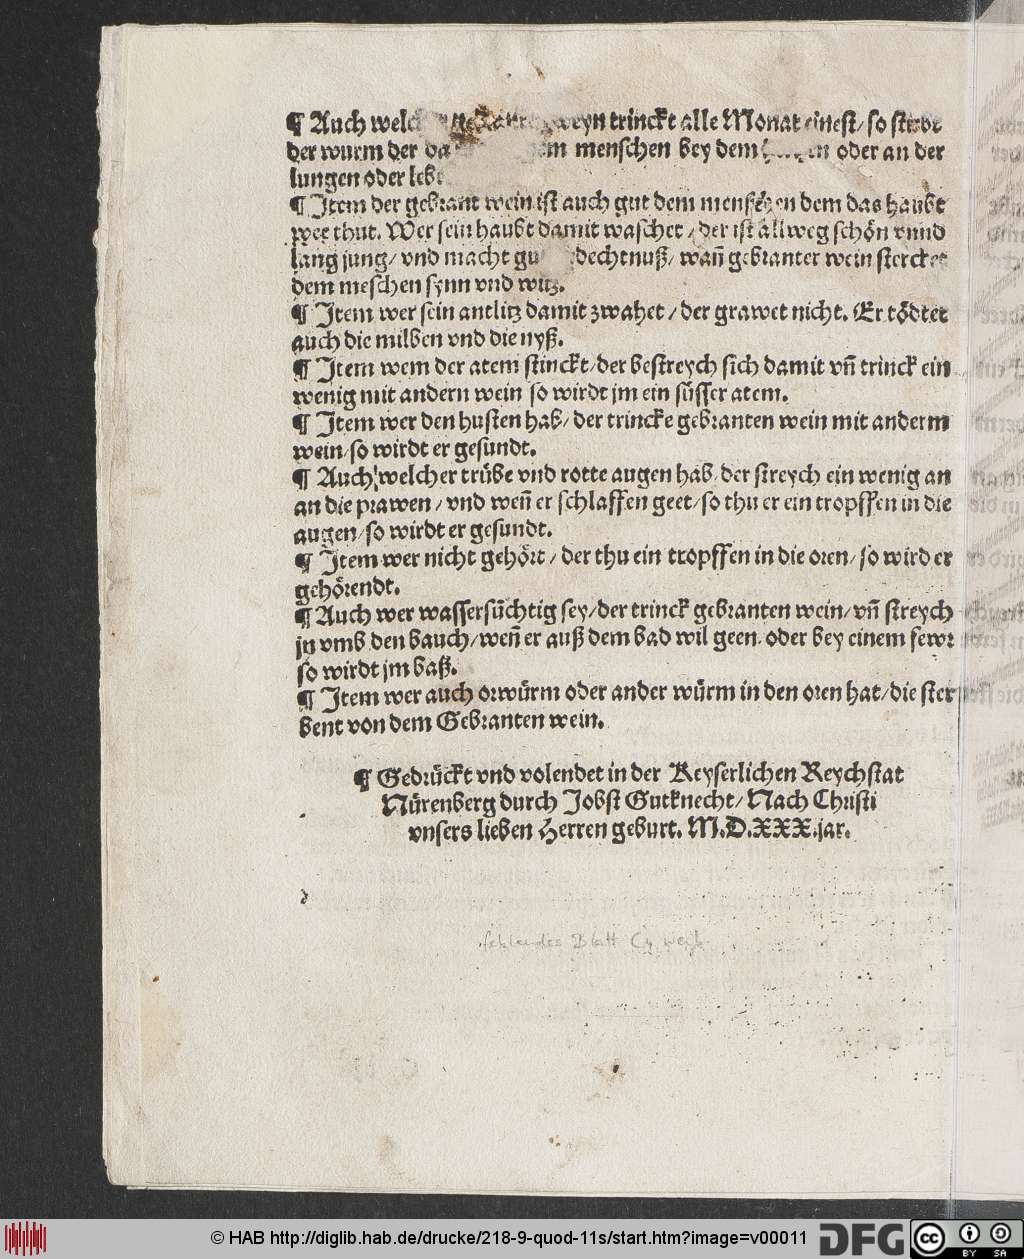 ¶ Auch trinckt alle Monat einest/ so stirbt
der wurm der menschen bey dem oder an der
lungen oder
¶ Item der gebrant wein ist auch gut dem menschen dem das haubt
wee thut. Wer sein haubt damit waschet/ der ist allweg schön vnnd
lang jung/ vnd macht wañ gebranter wein stercket
dem meschen synn vnd witz.
¶ Item wer sein antlitz damit zwahet/ der grawet nicht. Er tödtet
auch die milben vnd die nyß.
¶ Item wem der atem stinckt/ der bestreych sich damit vñ trinck ein
wenig mit andern wein so wirdt jm ein süsser atem.
¶ Item wer den husten hab/ der trincke gebranten wein mit anderm
wein/ so wirdt er gesundt.
¶ Auch welcher trübe vnd rotte augen hab/ der streych ein wenig an
an die prawen/ vnd weñ er schlaffen geet/ so thu er ein tropffen in die
augen/ so wirdt er gesundt.
¶ Item wer nicht gehört/ der thu ein tropffen in die oren/ so wird er
gehörendt.
¶ Auch wer wassersüchtig sey/ der trinck gebranten wein/ vñ streych
jn vmb den bauch/ weñ er auß dem bad wil geen/ oder bey einem fewr
so wirdt jm baß.
¶ Item wer auch orwürm oder ander würm in den oren hat/ die ster
bent von dem Gebranten wein.
¶ Gedrückt vnd volendet in der Keyserlichen Reychstat
Nürenberg durch Jobst Gutknecht/ Nach Christi
vnsers lieben Herren geburt. M.D.XXX.jar.
fehlendes Blatt C4 weiß
© HAB http://diglib.hab.de/drucke/218-9-quod-11s/start.htm?image=v00011
DFG
cc
BY SA